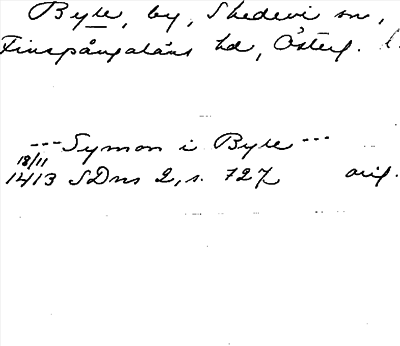 Byle, by, Skedevi sn,
Finspångaläns hd, Österg. l.
--- Symon i Byle ---
18/11
1413 SDns 2, s. 727 orig.